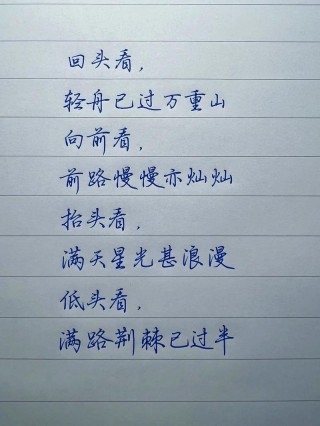 回头看，
轻舟已过万重山
向前看，
前路慢慢亦灿灿
抬头看，
满天星光甚浪漫
低头看，
满路荆棘已过半